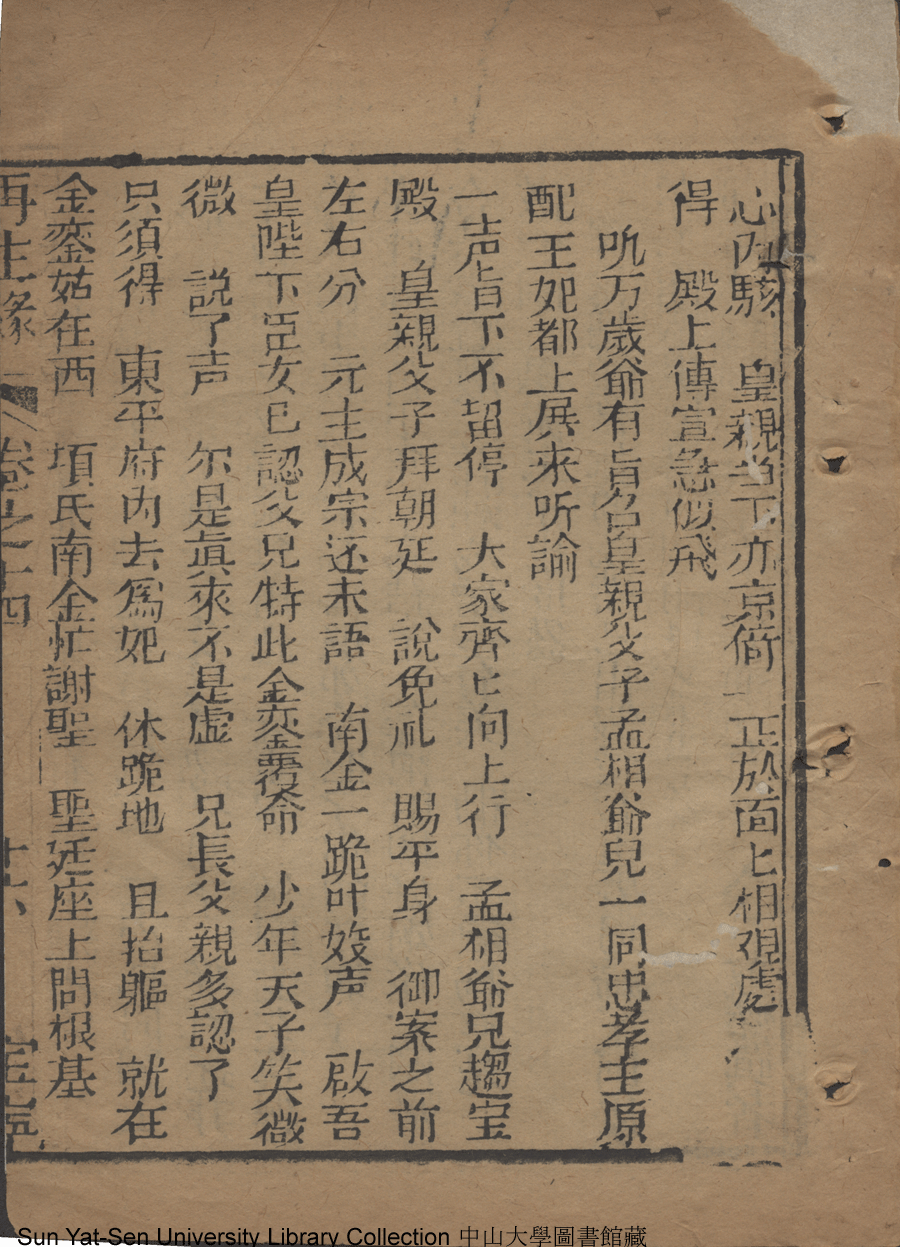 心內駭　皇親当下亦京徜　正於面匕相覌處
得　殿上傳宣急似飛
吼万歲爺有旨召皇親父子孟相爺兒一同忠孝王原
配王妃都上㞡來听諭
一声旨下不留停　大家齊匕向上行　孟相爺兄趨宝
殿　皇親父子拜朝廷　說免礼　賜平身　御案之前
左右分　元主成宗还未語　南金一跪叶娑声　啟吾
皇陛下臣女已認父兄特此金銮覆命　少年天子笑微
微　説了声　尔是眞來不是虛　兄長父親多認了
只須得　東平府內去爲妃　休跪地　且抬軀　就在
金銮姑在西　項氏南金忙謝聖　聖廷座上問根基
再生緣　卷之十四　十六
Sun Yat-Sen University Library Collection 中山大學圖書館藏